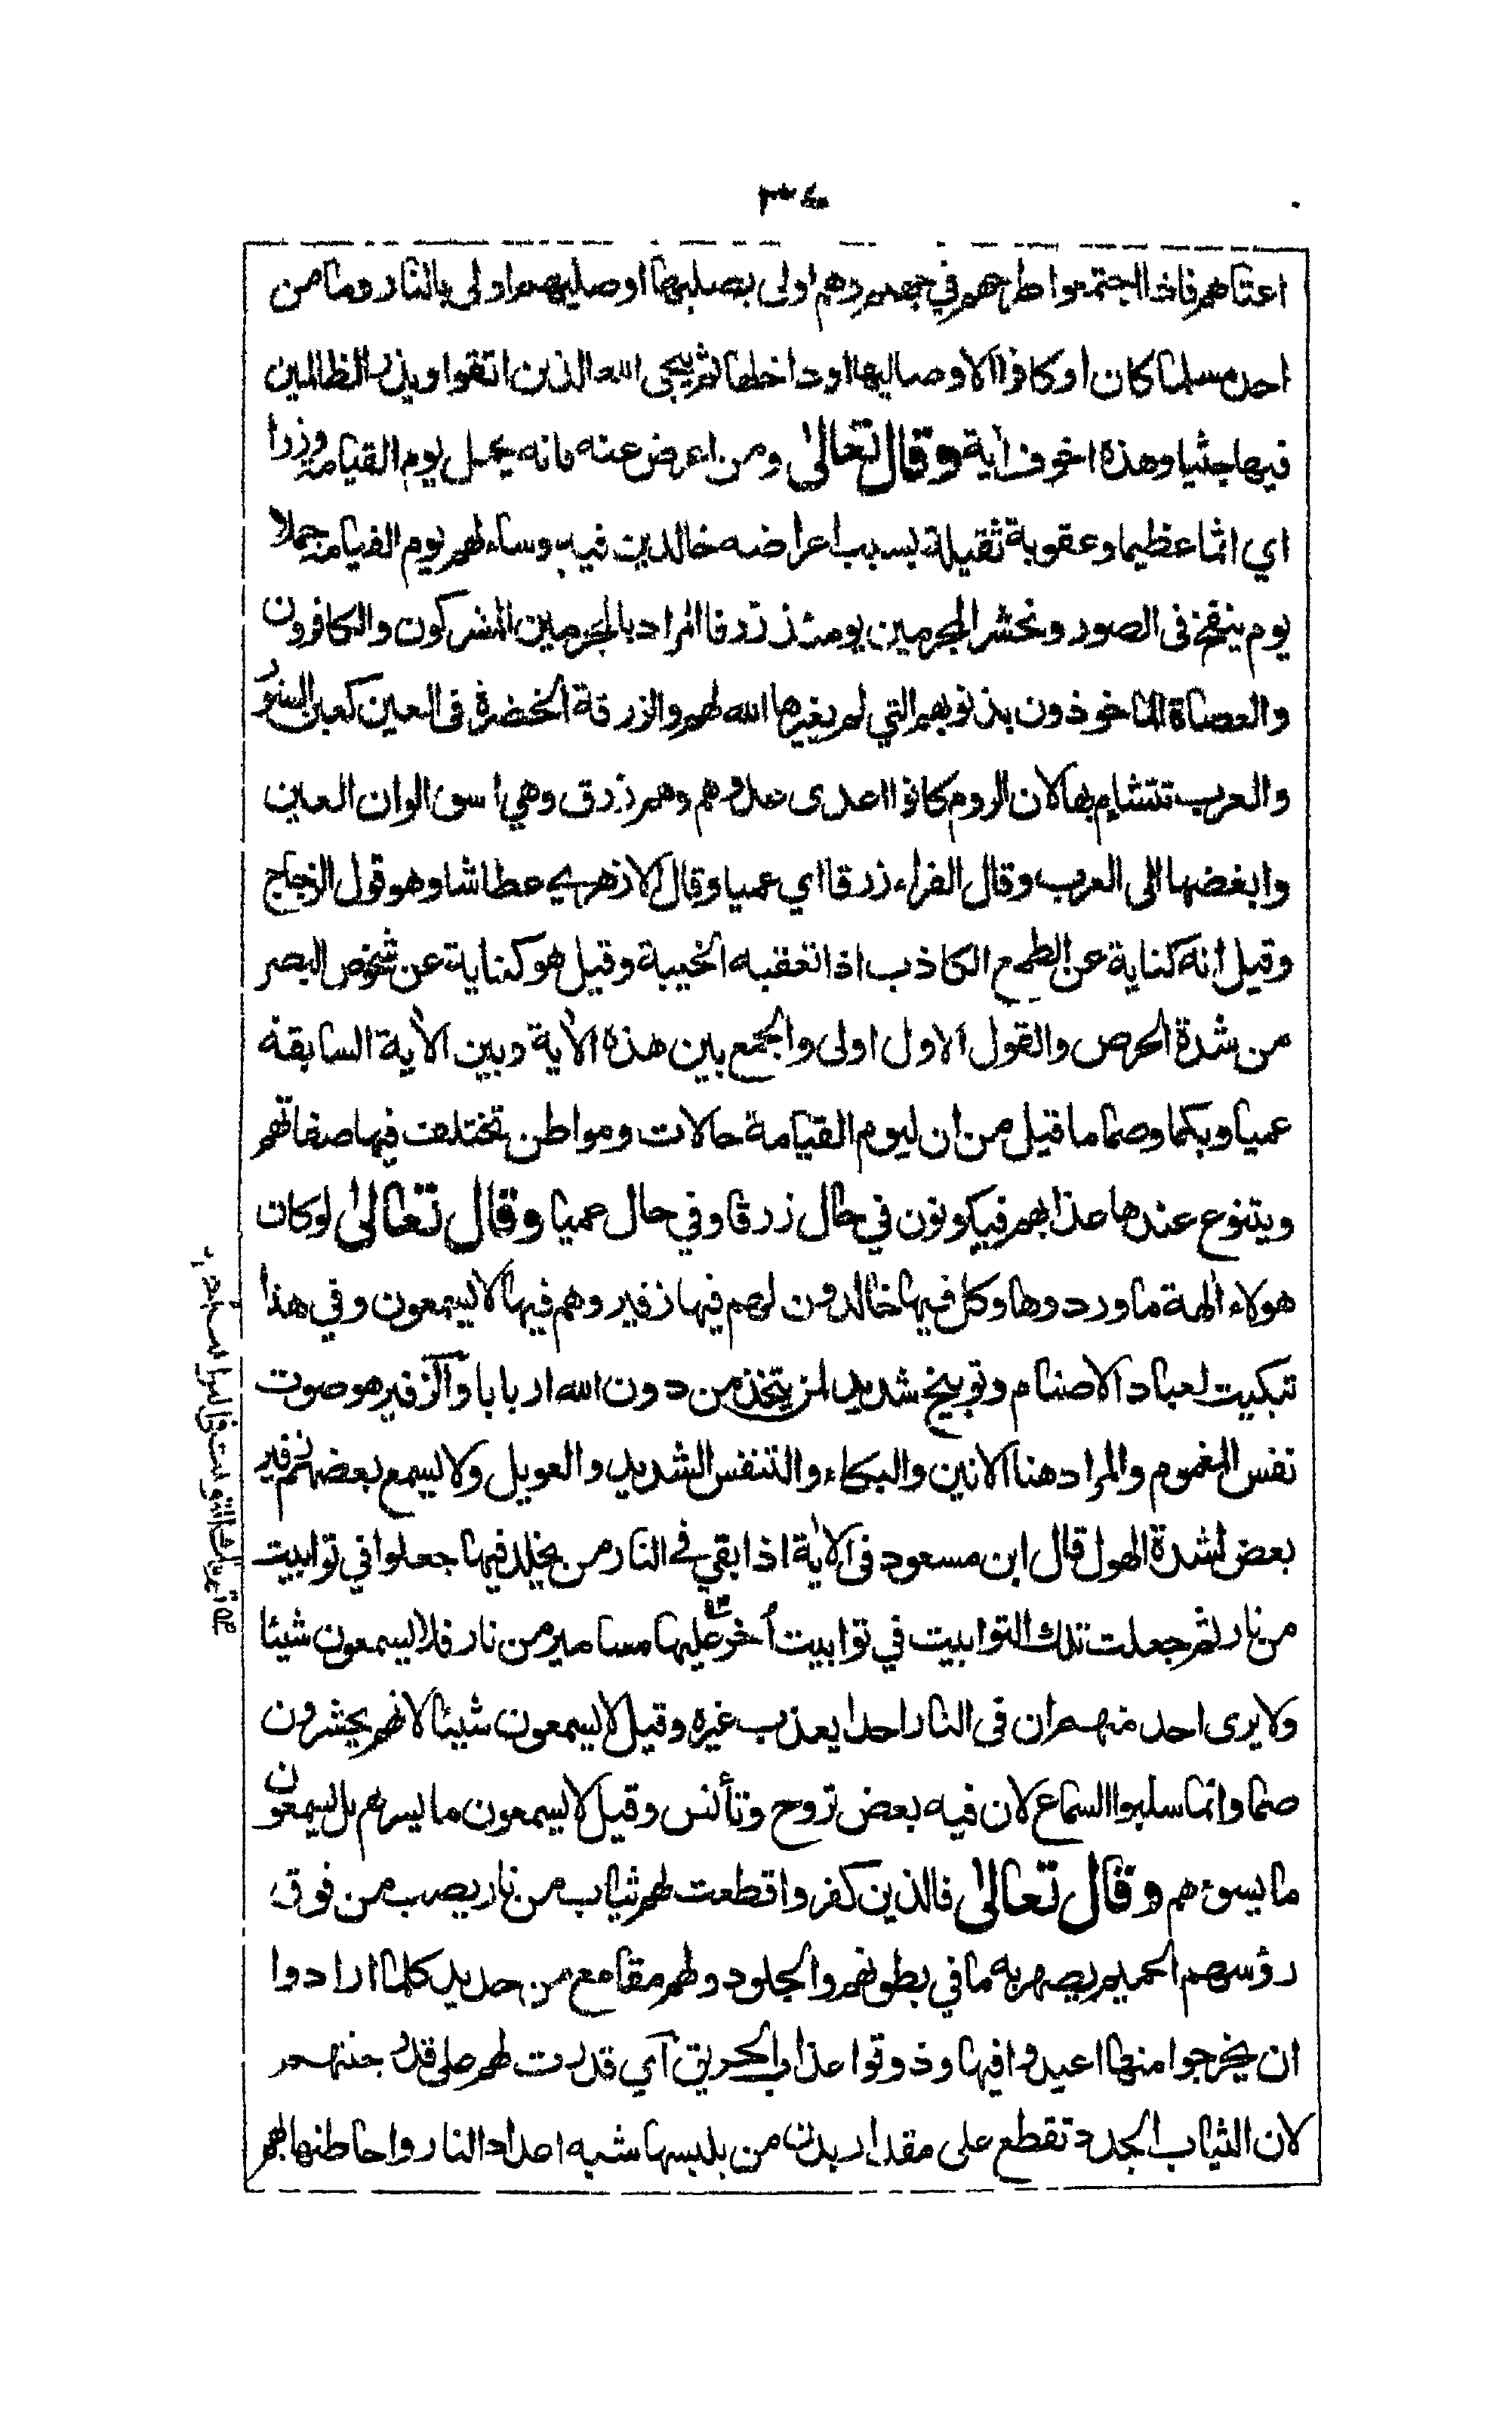 ٣٤
اعتاهم فاذا اجتمعوا طرحهم في جهنم وهم اولى بصليها او صليهم اولى بالنار وما من
احد مسلما كان او كافرا الا وصاليها او داخلها ثم ينجى الله الذين اتقوا ويذر الظالمين
فيها جثيا وهذه اخوف اية وقال تعالىٰ ومن اعرض عنه فانه يحمل يوم القيامة وزرا
اي اثما عظيما وعقوبة ثقيلة بسبب اعراضه خالدين فيه وساء لهم يوم القيامة حملا
يوم ينفخ فى الصور ونحشر المجرمين يومئذ زرقا المراد بالمجرمين المشركون والكافرون
والعصاة الماخوذون بذنوبهم التي لم يغفرها الله لهم والزرقة الخضرة فى العين كعين السنور
والعرب تتشاءم بها لان الروم كانوا اعدى عدوهم وهم زرق وهي اسوء الوان العين
وابغضها الى العرب وقال الفراء زرقا اي عميا وقال الازهري عطاشا وهو قول الزجاج
وقيل انه كناية عن الطمع الكاذب اذا تعقبه الخيبة وقيل هو كناية عن شخوص البصر
من شدة الحرص والقول الاول اولى والجمع بين هذه الاٰية وبين الاٰية السابقة
عميا وبكما وصما ما قيل من ان ليوم القيامة حالات ومواطن تختلف فيها صفاتهم
ويتنوع عندها عذابهم فيكونون في حال زرقا وفي حال عميا وقال تعالىٰ لو كان
هولاء اٰلهة ما وردوها وكل فيها خالدون لهم فيها زفير وهم فيها لا يسمعون وفي هذا
تبكيت لعباد الاصنام وتوبيخ شديد لمن يتخذ من دون الله اربابا وآلزفير هو صوت
نفس المغموم والمراد هنا الانين والبكاء والتنفس الشديد والعويل ولا يسمع بعضهم زفير
بعض لشدة الهول قال ابن مسعود فى الاٰية اذا بقي في النار من يخلد فيها جعلوا في توابيت
من نار ثم جعلت تلك التوابيت في توابيت أخر عليها مسامير من نار فلا يسمعون شيئا
ولا يرى احد منهم ان فى النار احدا يعذب غيره وقيل لا يسمعون شيئا لانهم يحشرون
صما وانما سلبوا السماع لان فيه بعض تروح وتأنس وقيل لا يسمعون ما يسرهم بل يسمعون
ما يسوءهم وقال تعالىٰ فالذين كفروا قطعت لهم ثياب من نار يصب من فوق
رؤسهم الحميم يصهر به ما في بطونهم والجلود ولهم مقامع من حديد كلما ارادوا
ان يخرجوا منها اعيدوا فيها وذوقوا عذاب الحريق آي قدرت لهم على قدر جثتهم
لان الثياب الجدد تقطع على مقدار بدن من يلبسها شبه اعداد النار واحاطتها بهم